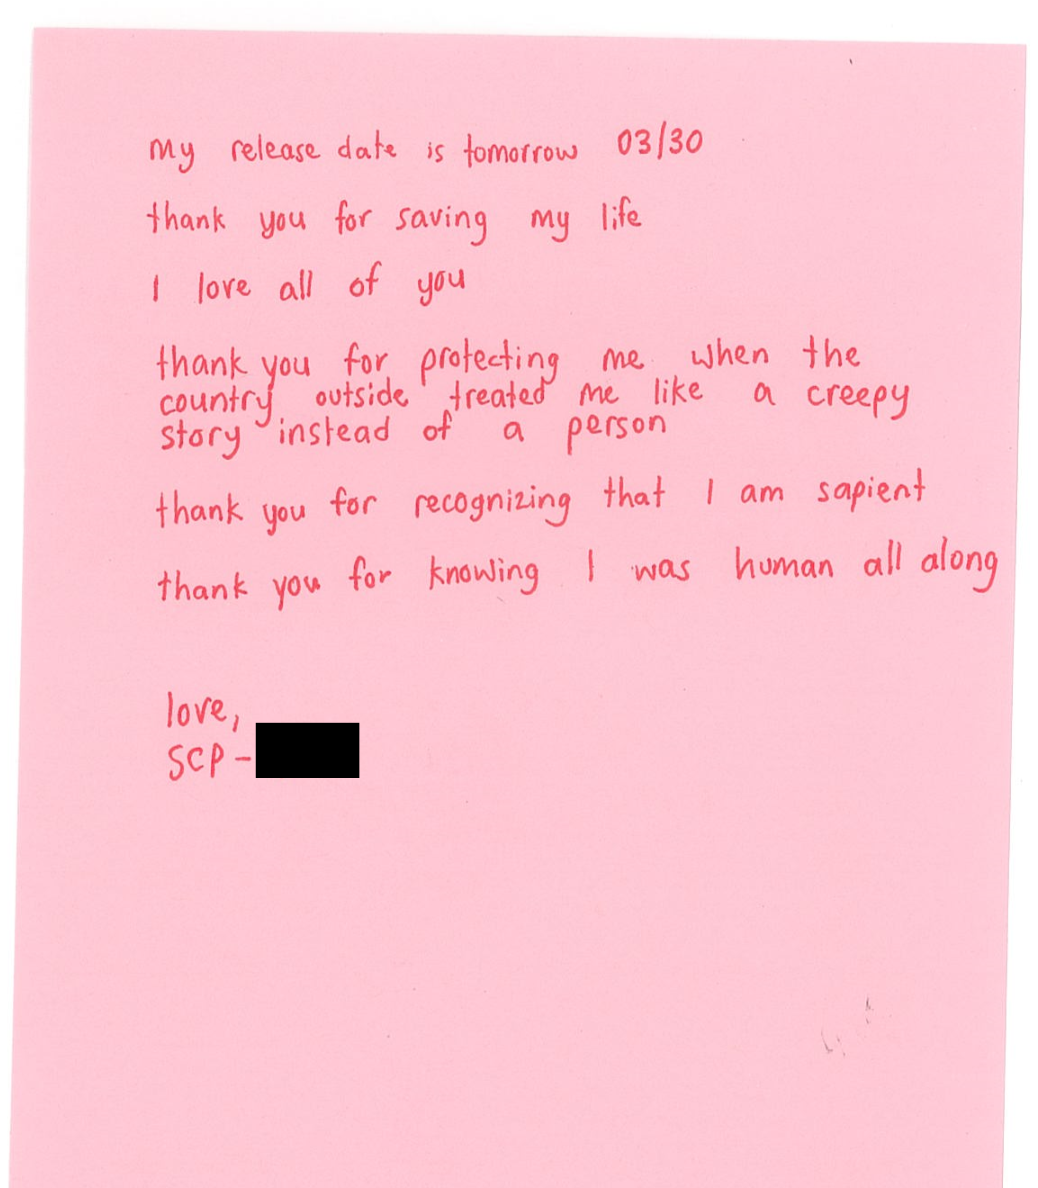 My release date is tomorrow 03/30
thank you for saving my life
I love all of you
thank you for protecting me when the
country outside treated me like a creepy
story instead of a person
thank you for recognizing that I am sapient
thank you for knowing I was human all along
love,
SCP-